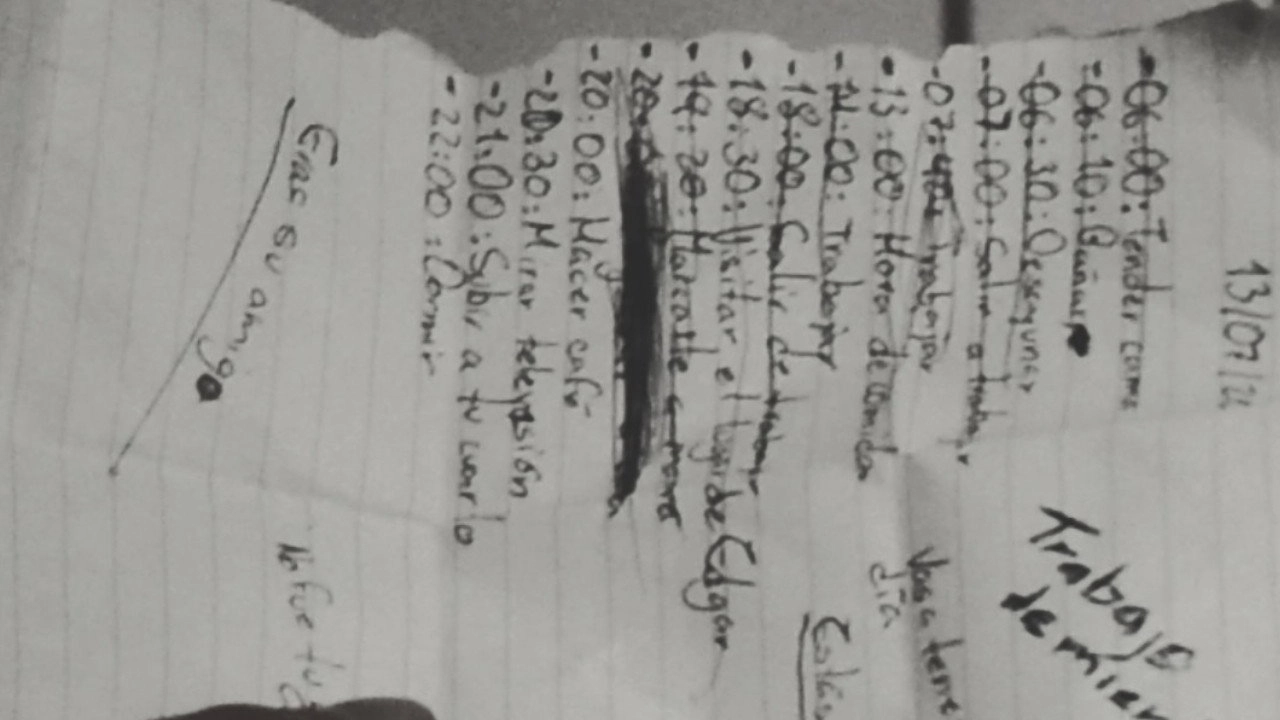 13/07/21
-06:00: Tender cama
-06:10: Bañar
-06:30: Desayunar
-07:00: Salir a trabajar
-07:40: Trabajar
-13:00: Hora de comida
-14:00: Trabajar
-18:00: Salir de trabajar
-18:30: Visitar el lugar de Edgar
-19:20: Marcarle a
-20:00: Hacer café
-20:30: Mirar televisión
-21:00: Subir a tu cuarto
-22:00: Dormir
Trabajo
de mier
Vas a tener
día
Estás
Eras su amigo
No fue tu